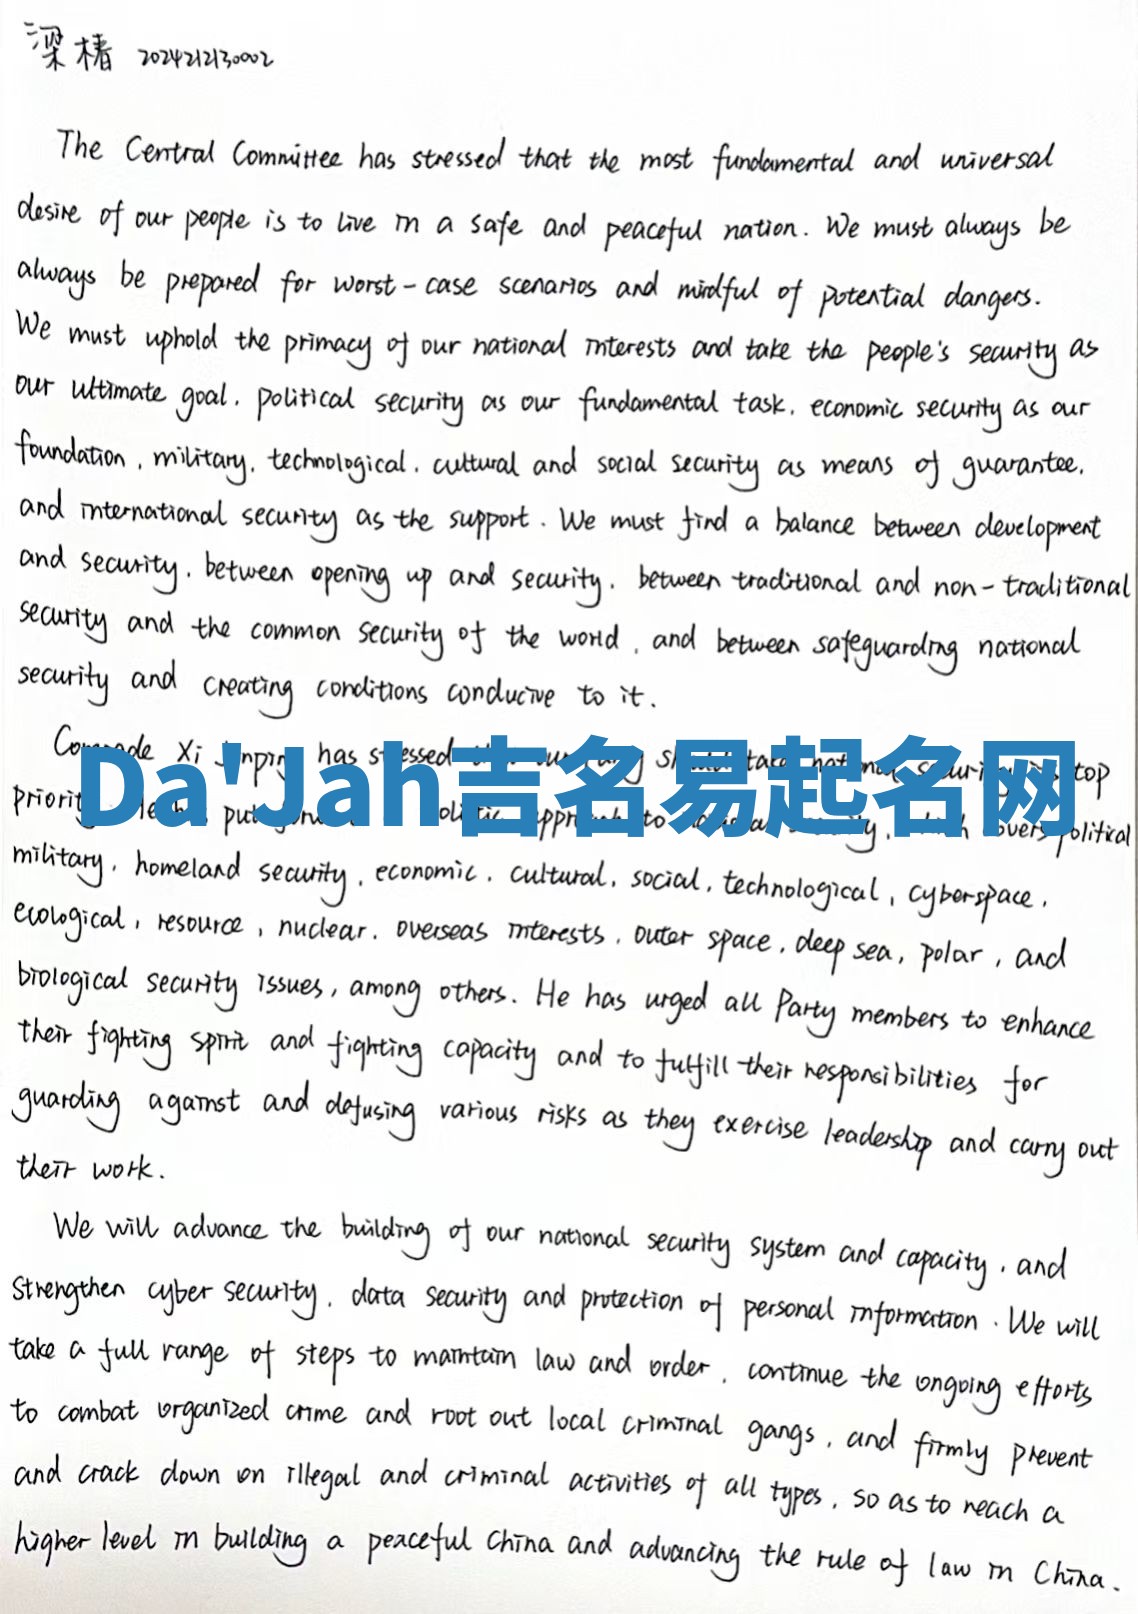 梁椿 2024212130002
The Central Committee has stressed that the most fundamental and universal
desire of our people is to live in a safe and peaceful nation. We must always be
always be prepared for worst-case scenarios and mindful of potential dangers.
We must uphold the primacy of our national interests and take the people's security as
our ultimate goal, political security as our fundamental task, economic security as our
foundation, military, technological, cultural and social security as means of guarantee,
and international security as the support. We must find a balance between development
and security, between opening up and security, between traditional and non-traditional
security and the common security of the world, and between safeguarding national
security and creating conditions conducive to it.
Comrade Xi Jinping has stressed take national security top
Da'Jah吉名易起名网
priority put approach to covers political
military, homeland security, economic, cultural, social, technological, cyberspace,
ecological, resource, nuclear, overseas interests, outer space, deep sea, polar, and
biological security issues, among others. He has urged all Party members to enhance
their fighting spirit and fighting capacity and to fulfill their responsibilities for
guarding against and defusing various risks as they exercise leadership and carry out
their work.
We will advance the building of our national security system and capacity, and
strengthen cyber security, data security and protection of personal information. We will
take a full range of steps to maintain law and order, continue the ongoing efforts
to combat organized crime and root out local criminal gangs, and firmly prevent
and crack down on illegal and criminal activities of all types, so as to reach a
higher level in building a peaceful China and advancing the rule of law in China.